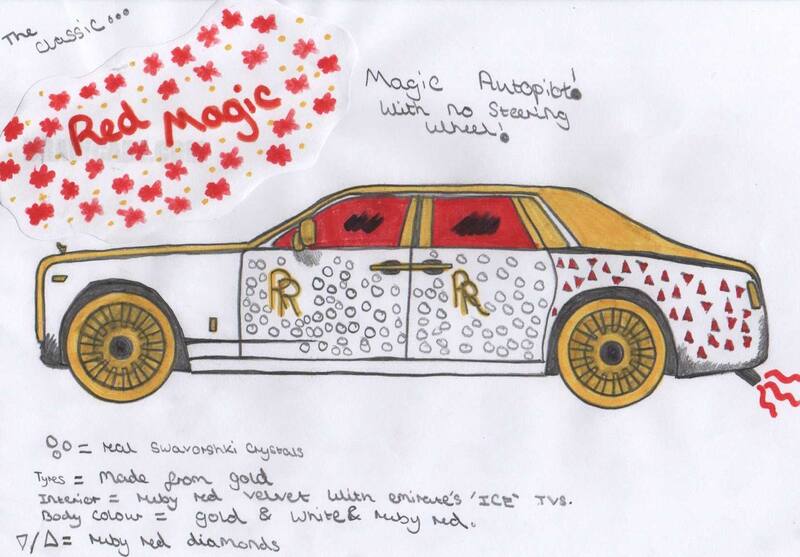 The
Classic...
Red Magic
Magic Autopilot!
With no Steering
Wheel!
RR
RR
= real Swavorshki Crystals
Tyres = Made from gold
Interior = ruby red velvet with emirate's "ICE" TVs.
Body Colour = gold & white & ruby red.
▽/△ = ruby red diamonds